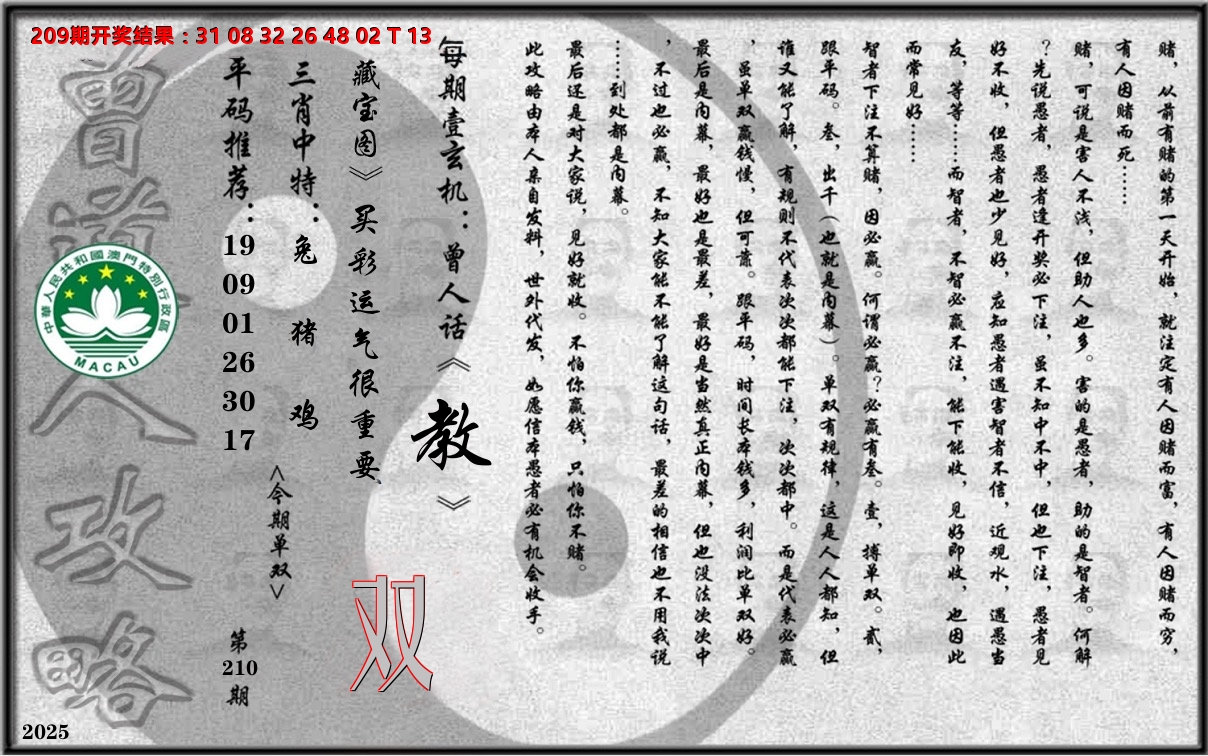 209期开奖结果：31 08 32 26 48 02 T 13
赌，从前有赌的第一天开始，就注定有人因赌而富，有人因赌而穷，
有人因赌而死……
赌，可说是害人不浅，但助人也多。害的是愚者，助的是智者。何解
？先说愚者，愚者逢开奖必下注，虽不知中不中，但也下注，愚者见
好不收，但愚者也少见好，应知愚者遇害智者不信，近观水，遇愚当
友，等等……而智者，不智必赢不注，能下能收，见好即收，也因此
而常见好……
智者下注不算赌，因必赢。何谓必赢？必赢有叁。壹，搏单双。贰，
跟平码。叁，出千（也就是内幕）。单双有规律，这是人人都知，但
谁又能了解，有规则不代表次次都能下注，次次都中。而是代表必赢
，虽单双赢钱慢，但可靠。跟平码，时间长本钱多，利润比单双好。
最后是内幕，最好也是最差，最好是当然真正内幕，但也没法次次中
，不过也必赢，不知大家能不能了解这句话，最差的相信也不用我说
……到处都是内幕。
最后还是对大家说，见好就收。不怕你赢钱，只怕你不赌。
此攻略由本人亲自发料，世外代发，如愿信本愚者必有机会收手。
每期壹玄机：曾人话《教》
藏宝图》买彩运气很重要
双
三肖中特：兔 猪 鸡
<今期单双>
平码推荐：19 09 01 26 30 17
第210期
曾道人攻略
中華人民共和國澳門特別行政區
MACAU
2025